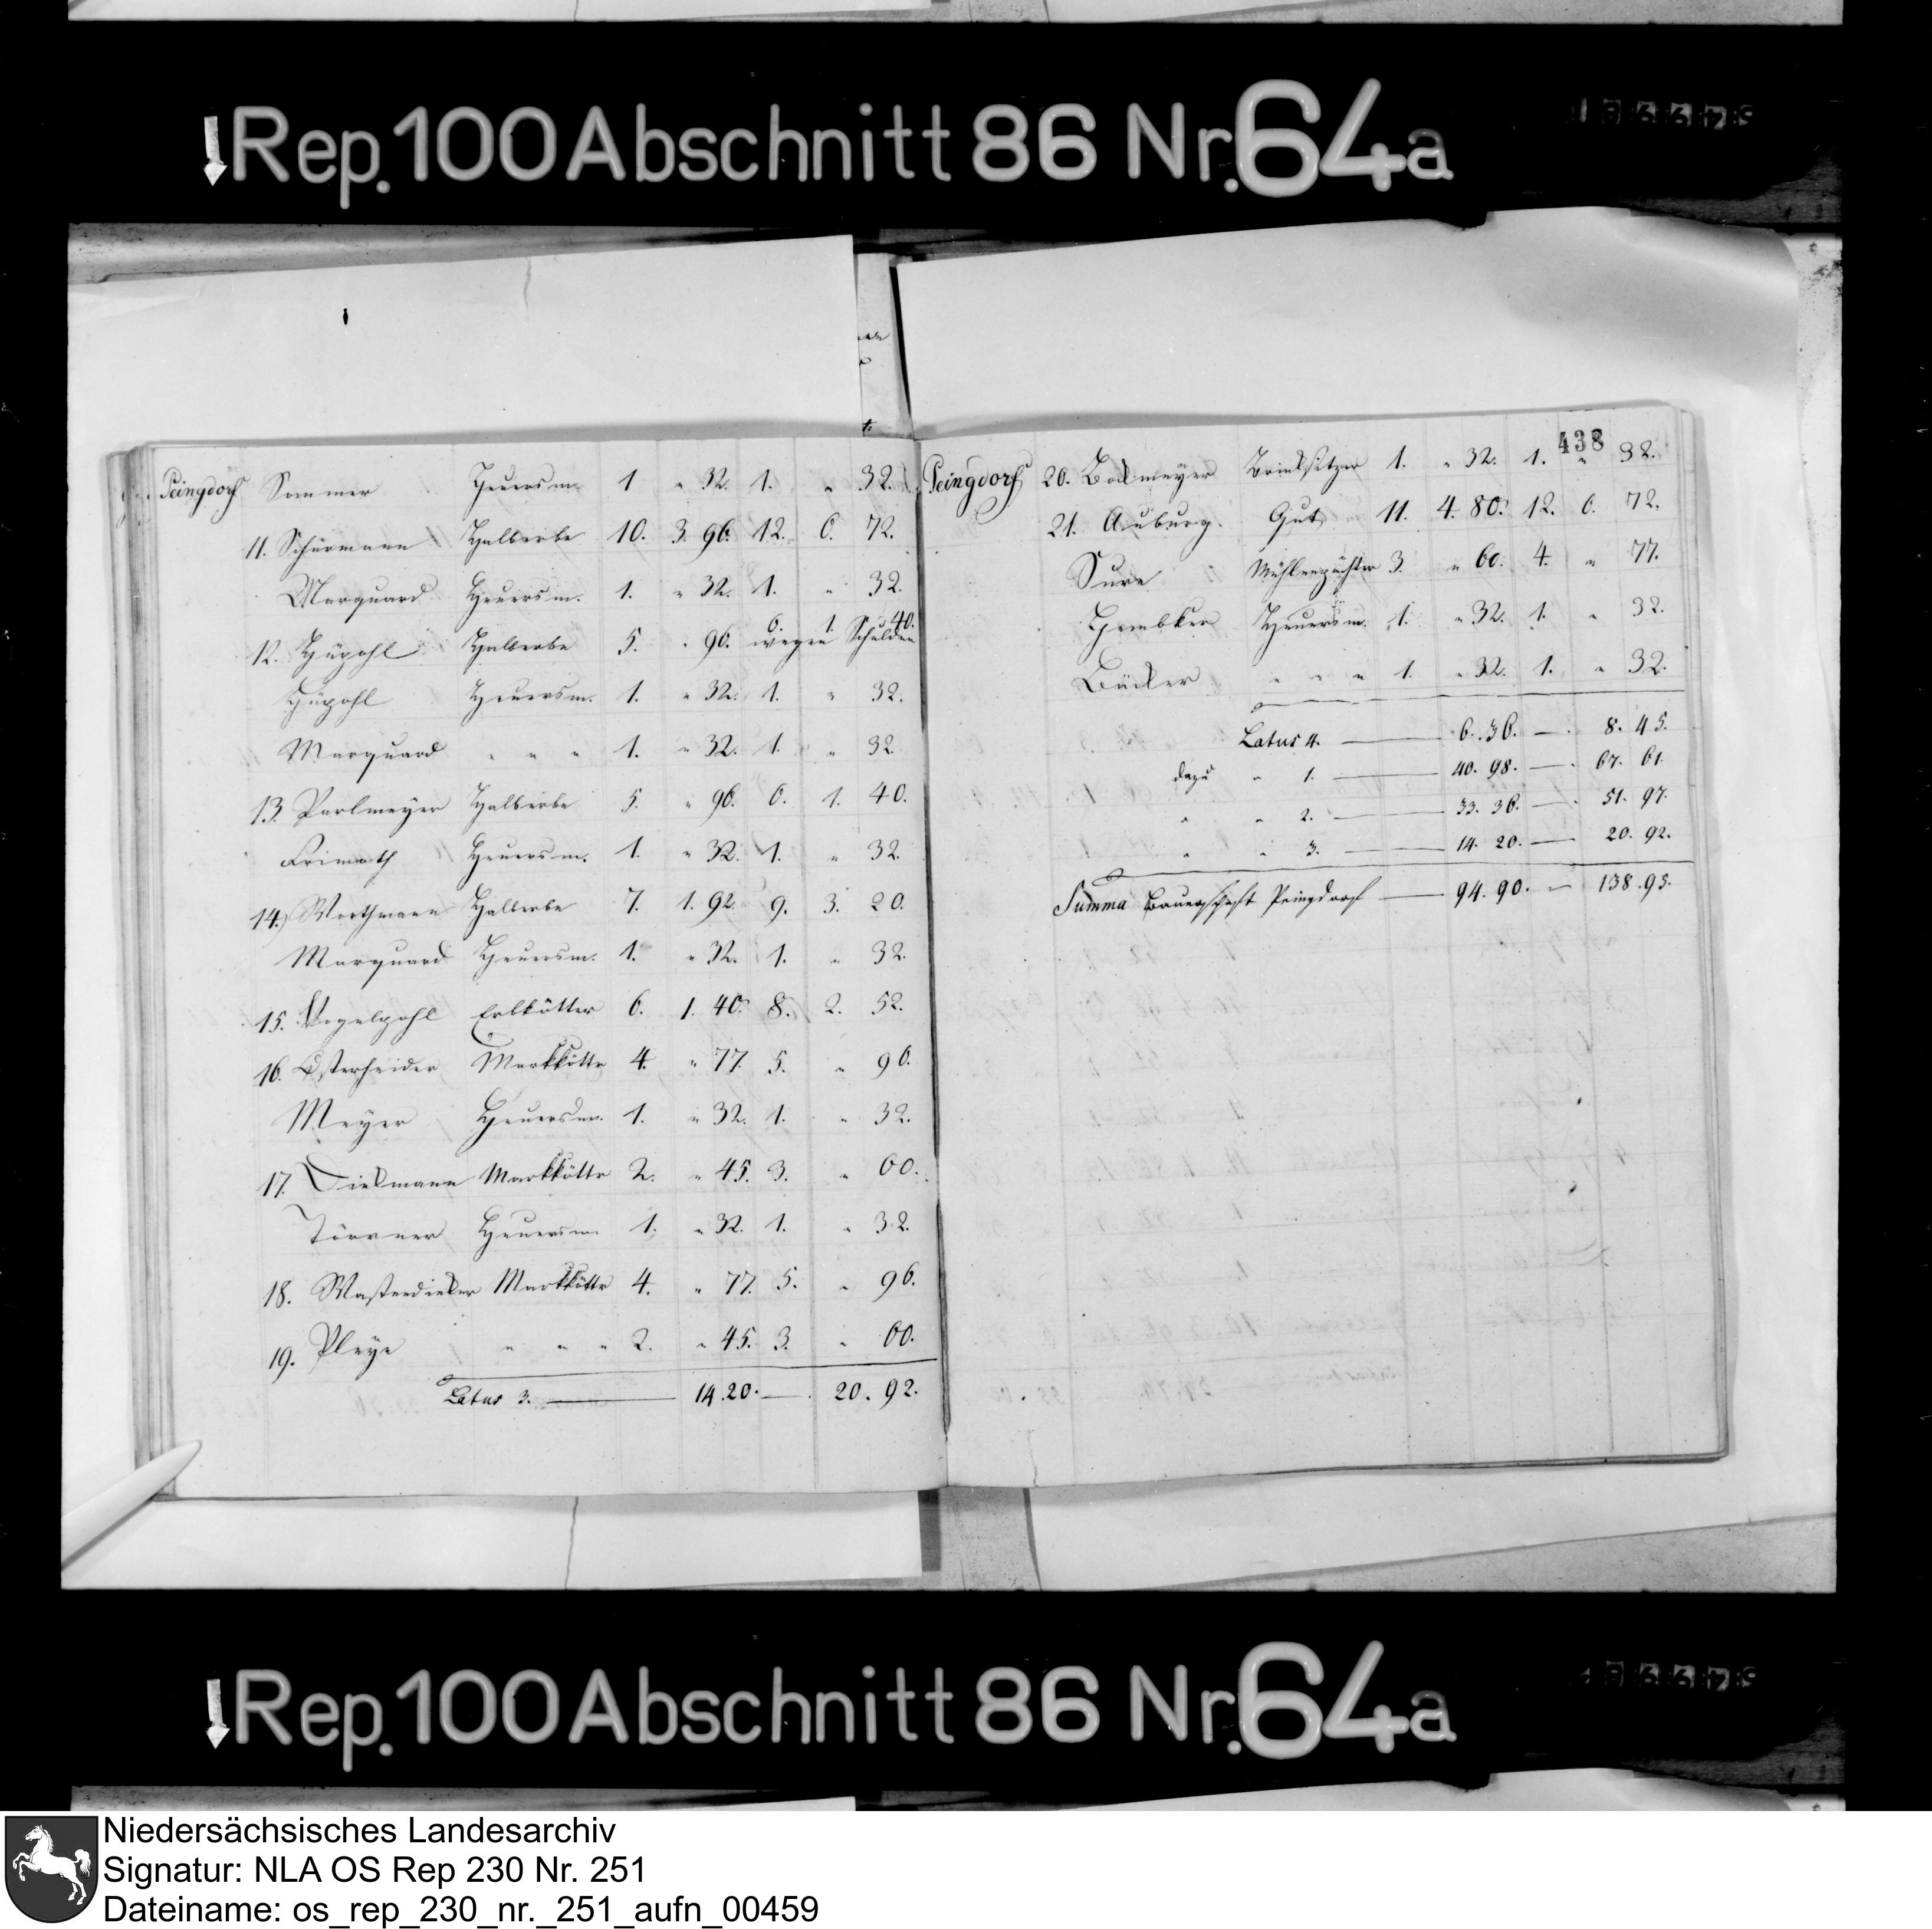 Rep. 100 Abschnitt 86 Nr. 64a
Peingdorf Sommer Heuersm. 1 " 32. 1. " 32.
11. Schürmann Halberbe 10. 3. 96. 12. 6. 72.
Marquard Heuersm. 1. " 32. 1. " 32.
6. 1. 40.
12. Hüpohl Halberbe 5. " 96. wegen Schulden
Hüpohl Heuersm. 1. " 32. 1. " 32.
Marquard " " " 1. " 32. 1. " 32.
13. Parlmeyer Halberbe 5. " 96. 6. 1. 40.
Frimoth Heuersm. 1. " 32. 1. " 32.
14.) Worthmann Halberbe 7. 1. 92. 9. 3. 20.
Marquard Heuersm. 1. " 32. 1. " 32.
15. Vogelpohl Erbkötter 6. 1. 40. 8. 2. 52.
16. Osterheider Markkötter 4. " 77. 5. " 96.
Meyer Heuersm. 1. " 32. 1. " 32.
17. Diekmann Markkötter 2. " 45. 3. " 60.
Törner Heuersm. 1. " 32. 1. " 32.
18. Westerdieker Markkötter 4. " 77. 5. " 96.
19. Pleye " " " 2. " 45. 3. " 60.
Latus 3. — 14. 20. — 20. 92.
438
Peingdorf 20. Bockmeyer Brinksitzer 1. " 32. 1. " 32.
21. Auburg. Gut 11. 4. 80. 12. 6. 72.
Sure Mühlenpächter 3. " 60. 4. " 77.
Hambker Heuersm. 1. " 32. 1. " 32.
Bäcker " " " 1. " 32. 1. " 32.
Latus 4. — 6. 36. — 8. 45.
dazu " 1. — 40. 98. — 67. 61.
" " 2. — 33. 36. — 51. 97.
" " 3. — 14. 20. — 20. 92.
Summa Bauerschaft Peingdorf — 94. 90. — 138. 95.
Rep. 100 Abschnitt 86 Nr. 64a
Niedersächsisches Landesarchiv
Signatur: NLA OS Rep 230 Nr. 251
Dateiname: os_rep_230_nr._251_aufn_00459